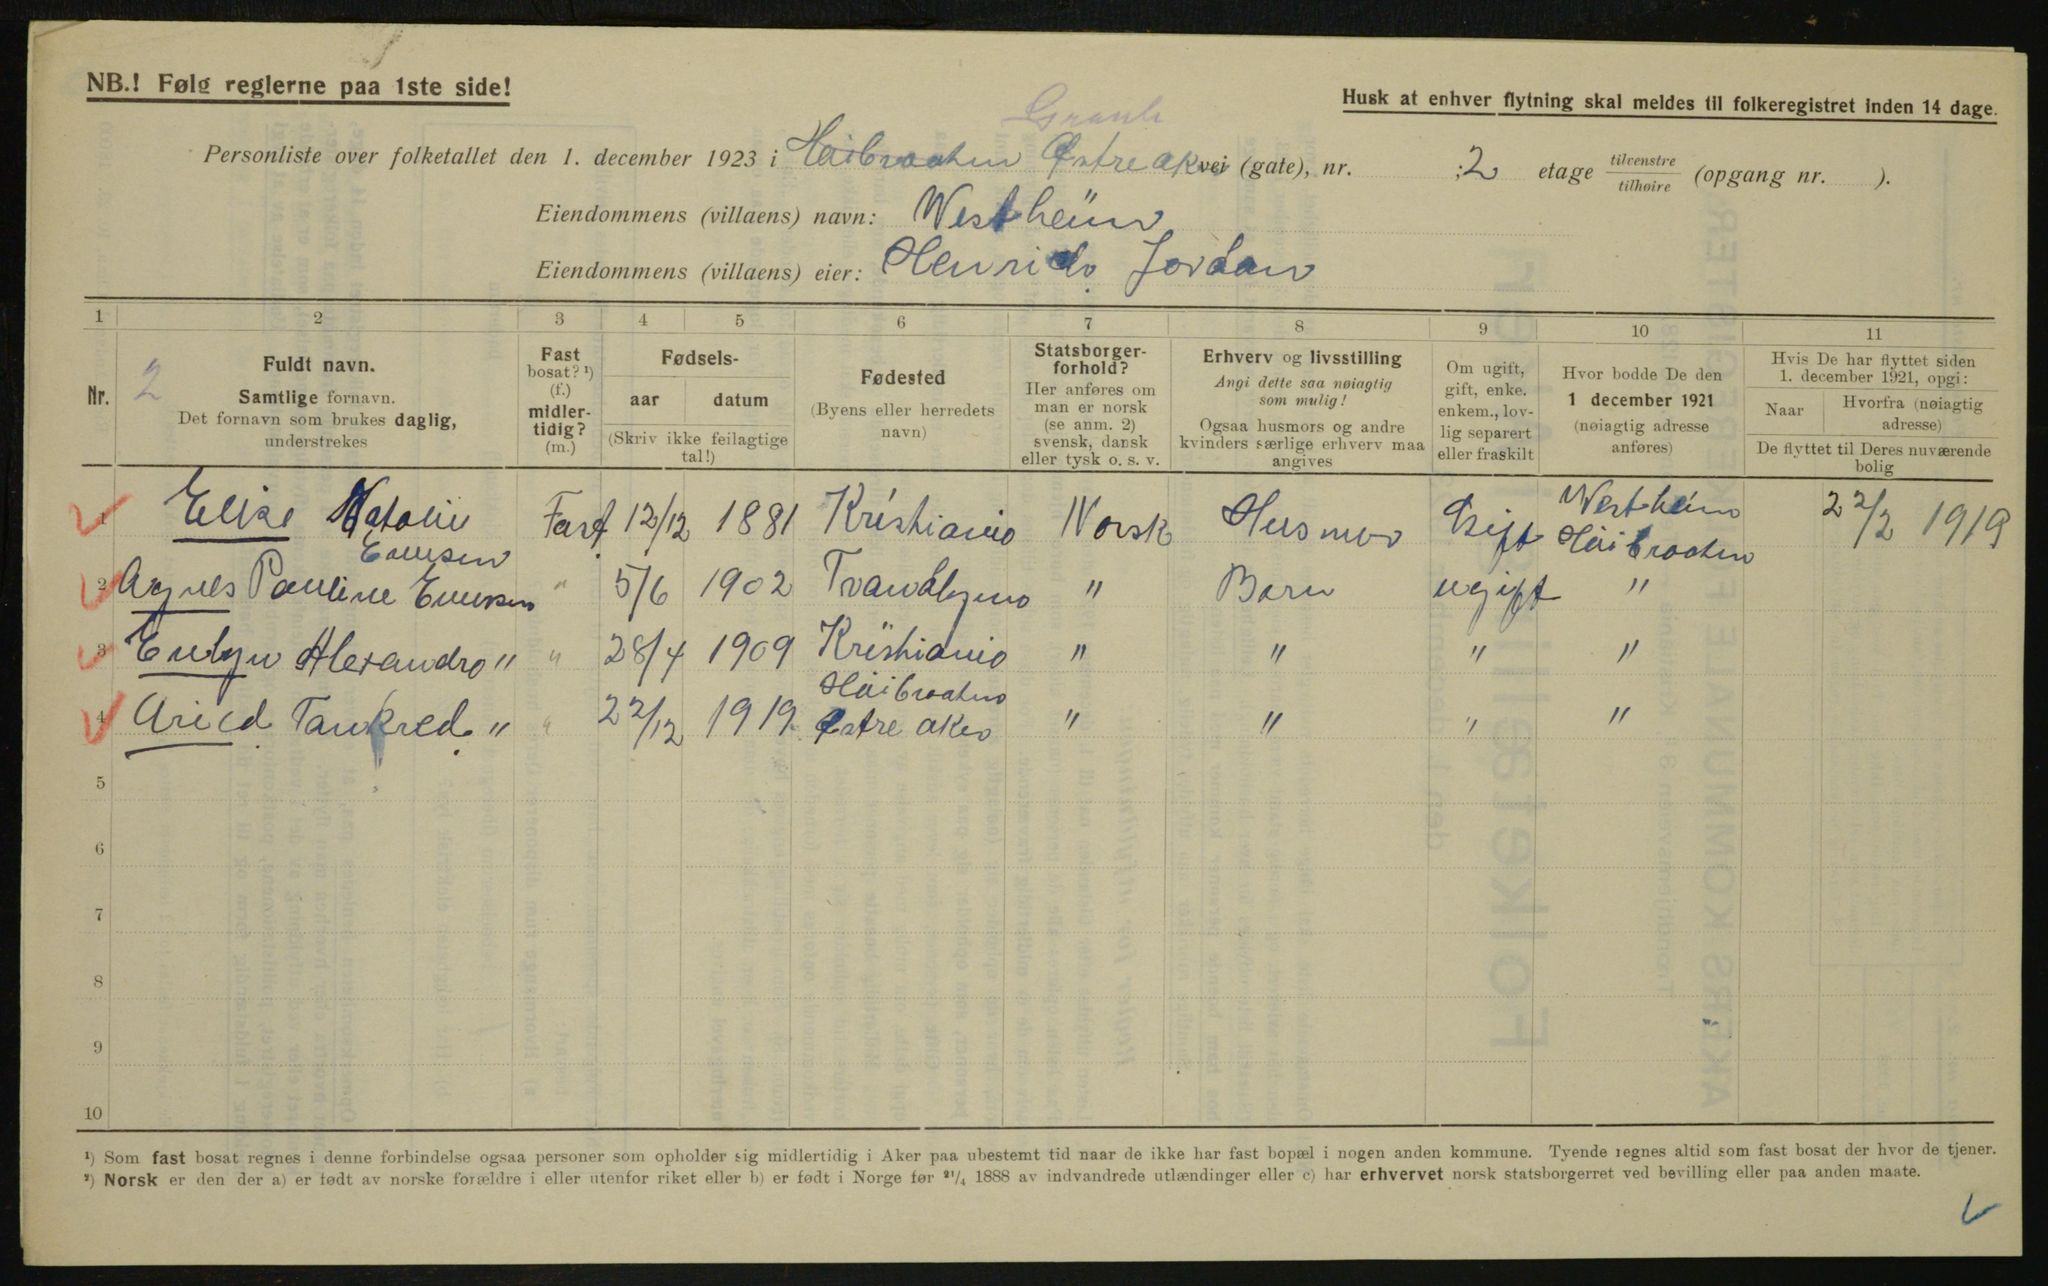 NB.! Følg reglerne paa 1ste side!
Husk at enhver flytning skal meldes til folkeregistret inden 14 dage.
Personliste over folketallet den 1. december 1923 i Høibraaten Østre aker vei (gate), nr. ; 2 etage tilvenstre tilhøire (opgang nr. ).
Eiendommens (villaens) navn: Westheim
Eiendommens (villaens) eier: Henrich Jordan
1 2 3 4 5 6 7 8 9 10 11
Nr. 2
Fuldt navn.
Samtlige fornavn.
Det fornavn som brukes daglig,
understrekes
Fast
bosat? ¹)
(f.)
midler-
tidig?
(m.)
Fødsels-
aar datum
(Skriv ikke feilagtige
tal!)
Fødested
(Byens eller herredets
navn)
Statsborger-
forhold?
Her anføres om
man er norsk
(se anm. 2)
svensk, dansk
eller tysk o. s. v.
Erhverv og livsstilling
Angi dette saa nøiagtig
som mulig!
Ogsaa husmors og andre
kvinders særlige erhverv maa
angives
Om ugift,
gift, enke.
enkem., lov-
lig separert
eller fraskilt
Hvor bodde De den
1 december 1921
(nøiagtig adresse
anføres)
Hvis De har flyttet siden
1. december 1921, opgi:
Naar Hvorfra (nøiagtig
adresse)
De flyttet til Deres nuværende
bolig
1 Elise Natalie Fast 12/12 1881 Kristiania Norsk Husmor Gift Westheim Høibraaten 22/2 1919
2 Agnes Pauline " 5/6 1902 " Barn ugift "
3 Evelyn Alexandra " " 28/4 1909 Kristiania " " " "
4 Tankred " " 22/12 1919 Høibraaten Østre aker " " " "
5
6
7
8
9
10
¹) Som fast bosat regnes i denne forbindelse ogsaa personer som opholder sig midlertidig i Aker paa ubestemt tid naar de ikke har fast bopæl i nogen anden kommune. Tyende regnes altid som fast bosat der hvor de tjener.
²) Norsk er den der a) er født av norske forældre i eller utenfor riket eller b) er født i Norge før ²¹/₄ 1888 av indvandrede utlændinger eller c) har erhvervet norsk statsborgerret ved bevilling eller paa anden maate.